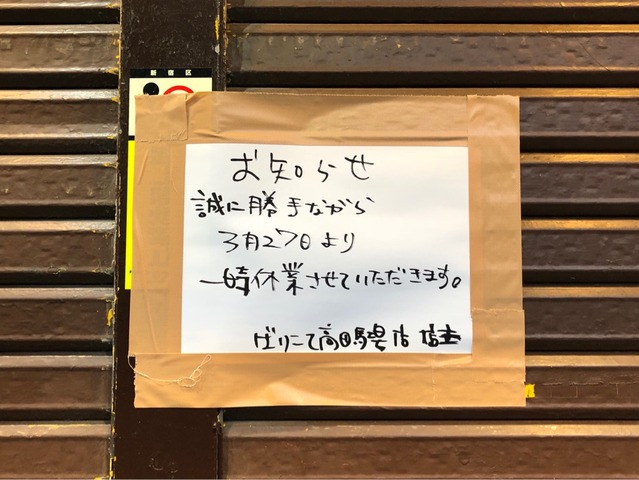 新宿区
お知らせ
誠に勝手ながら
3月27日より
一時休業させていただきます。
ばりこて高田馬場店 店主